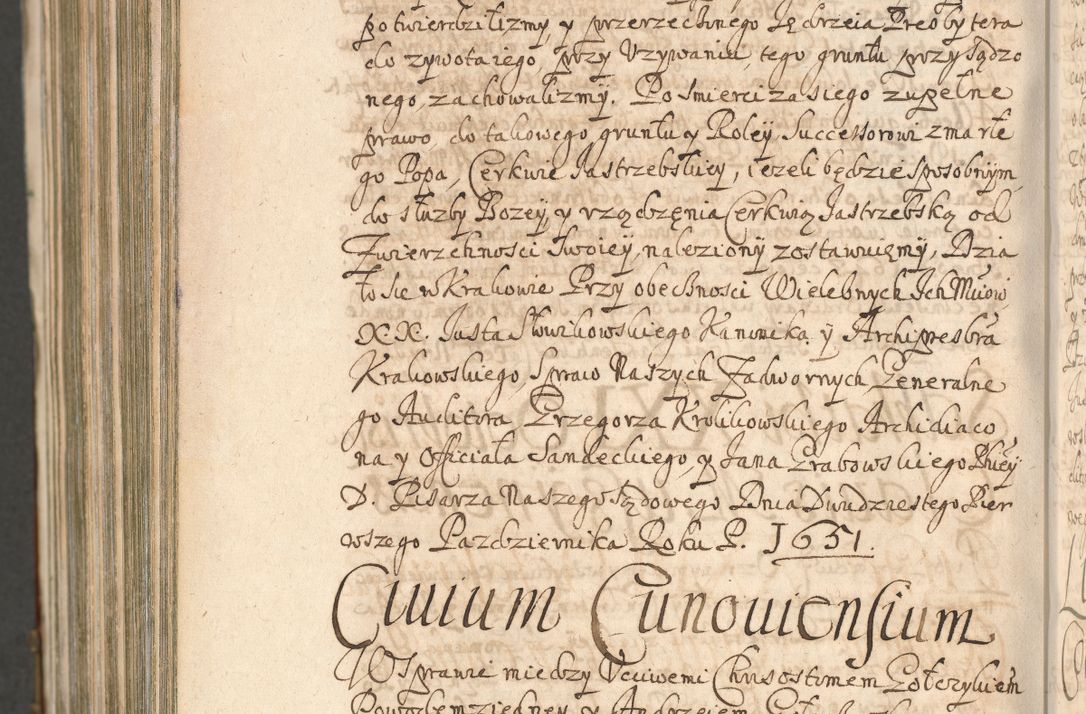 potwierdzilizmy, y przerzeczonego Jędrzeia Presbytera
do zywota iego, przy Vzywaniu, tego gruntu przysądzo
nego, zachowalizmy. Po smierci zasiego zupełne
prawo, do takowego, gruntu y Roley, Successorowi zmarłe
go Popa, Cerkwie Jastrzebskiey, iezeli będzie sposobnym,
do słuzby Bozey, y rządzęnia Cerkwią Jastrzebską od
Zwierzchnosci swoiey, nalezony zostawuięmy, Dzia
ło sie w Krakowie Przy obecznosci Wielebnych Ich Mciow,
X.X. Justa Słowikowskiego Kanonika y Archipresbra
Krakowskiego, Spraw Naszych Zadwornych Generalne
go Auditora, Grzegorza Krolikowskiego Archidiaco
na y Officiała Sandeckiego, y Jana Grabowskiego
D. Pisarza Naszego Sądowego Dnia Dwudziestego Pier
wszego Pazdziernika Roku P. 1651.
Ciuium Cunouiensium
W Sprawie miedzy Vcciwemi Chrisostimem
y Andrzeiem